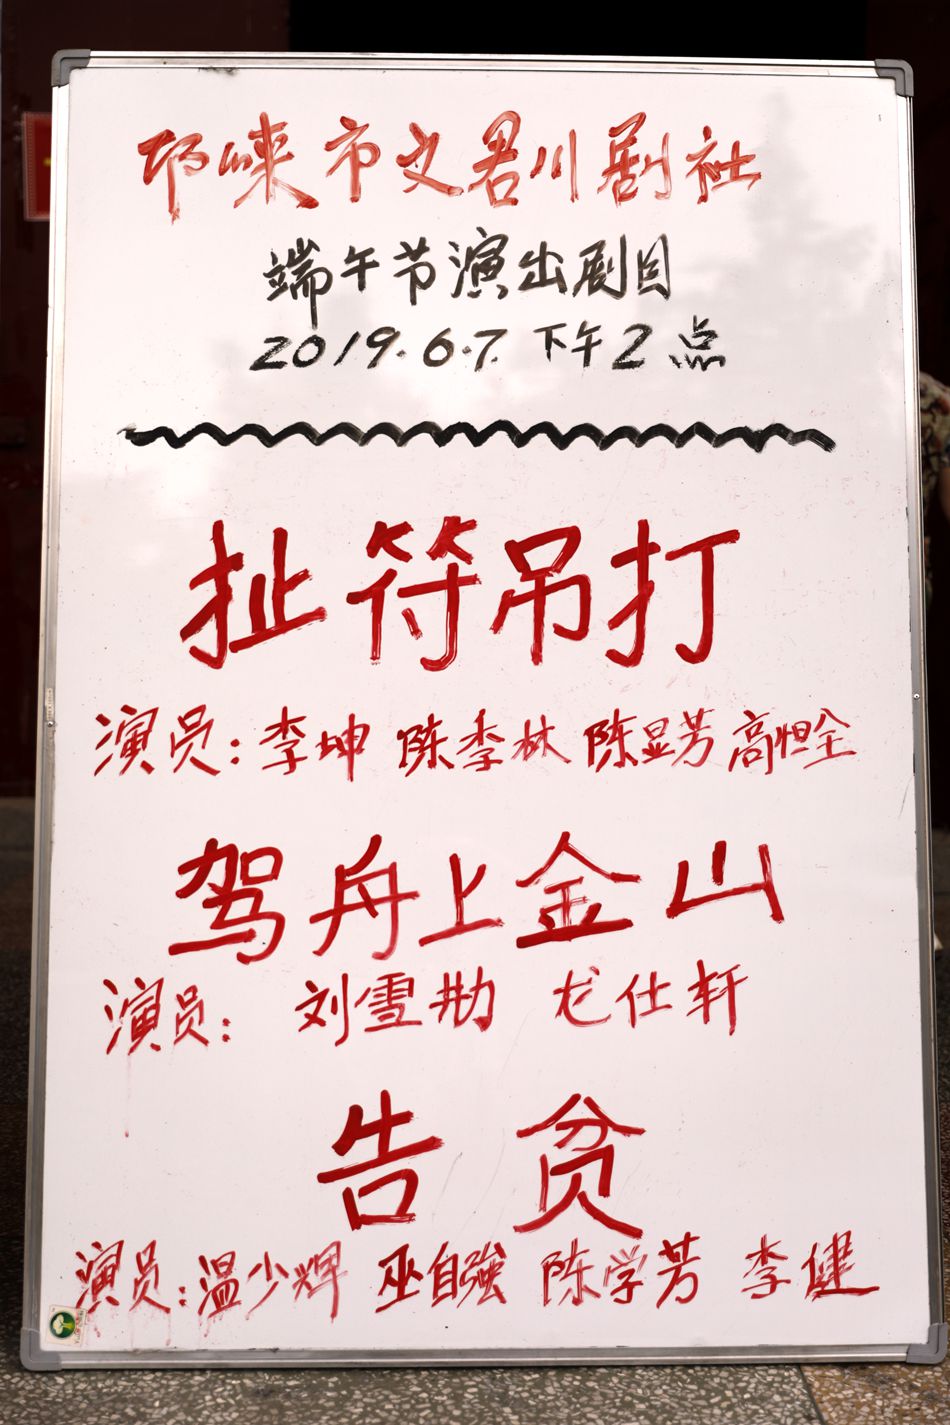 邛崃市文君川剧社
端午节演出剧目
2019.6.7. 下午2点
扯符吊打
演员：李坤 陈季林 陈显芳 高恒全
驾舟上金山
演员： 刘雪勤 龙仕轩
告贫
演员：温少辉 巫自强 陈学芳 李健